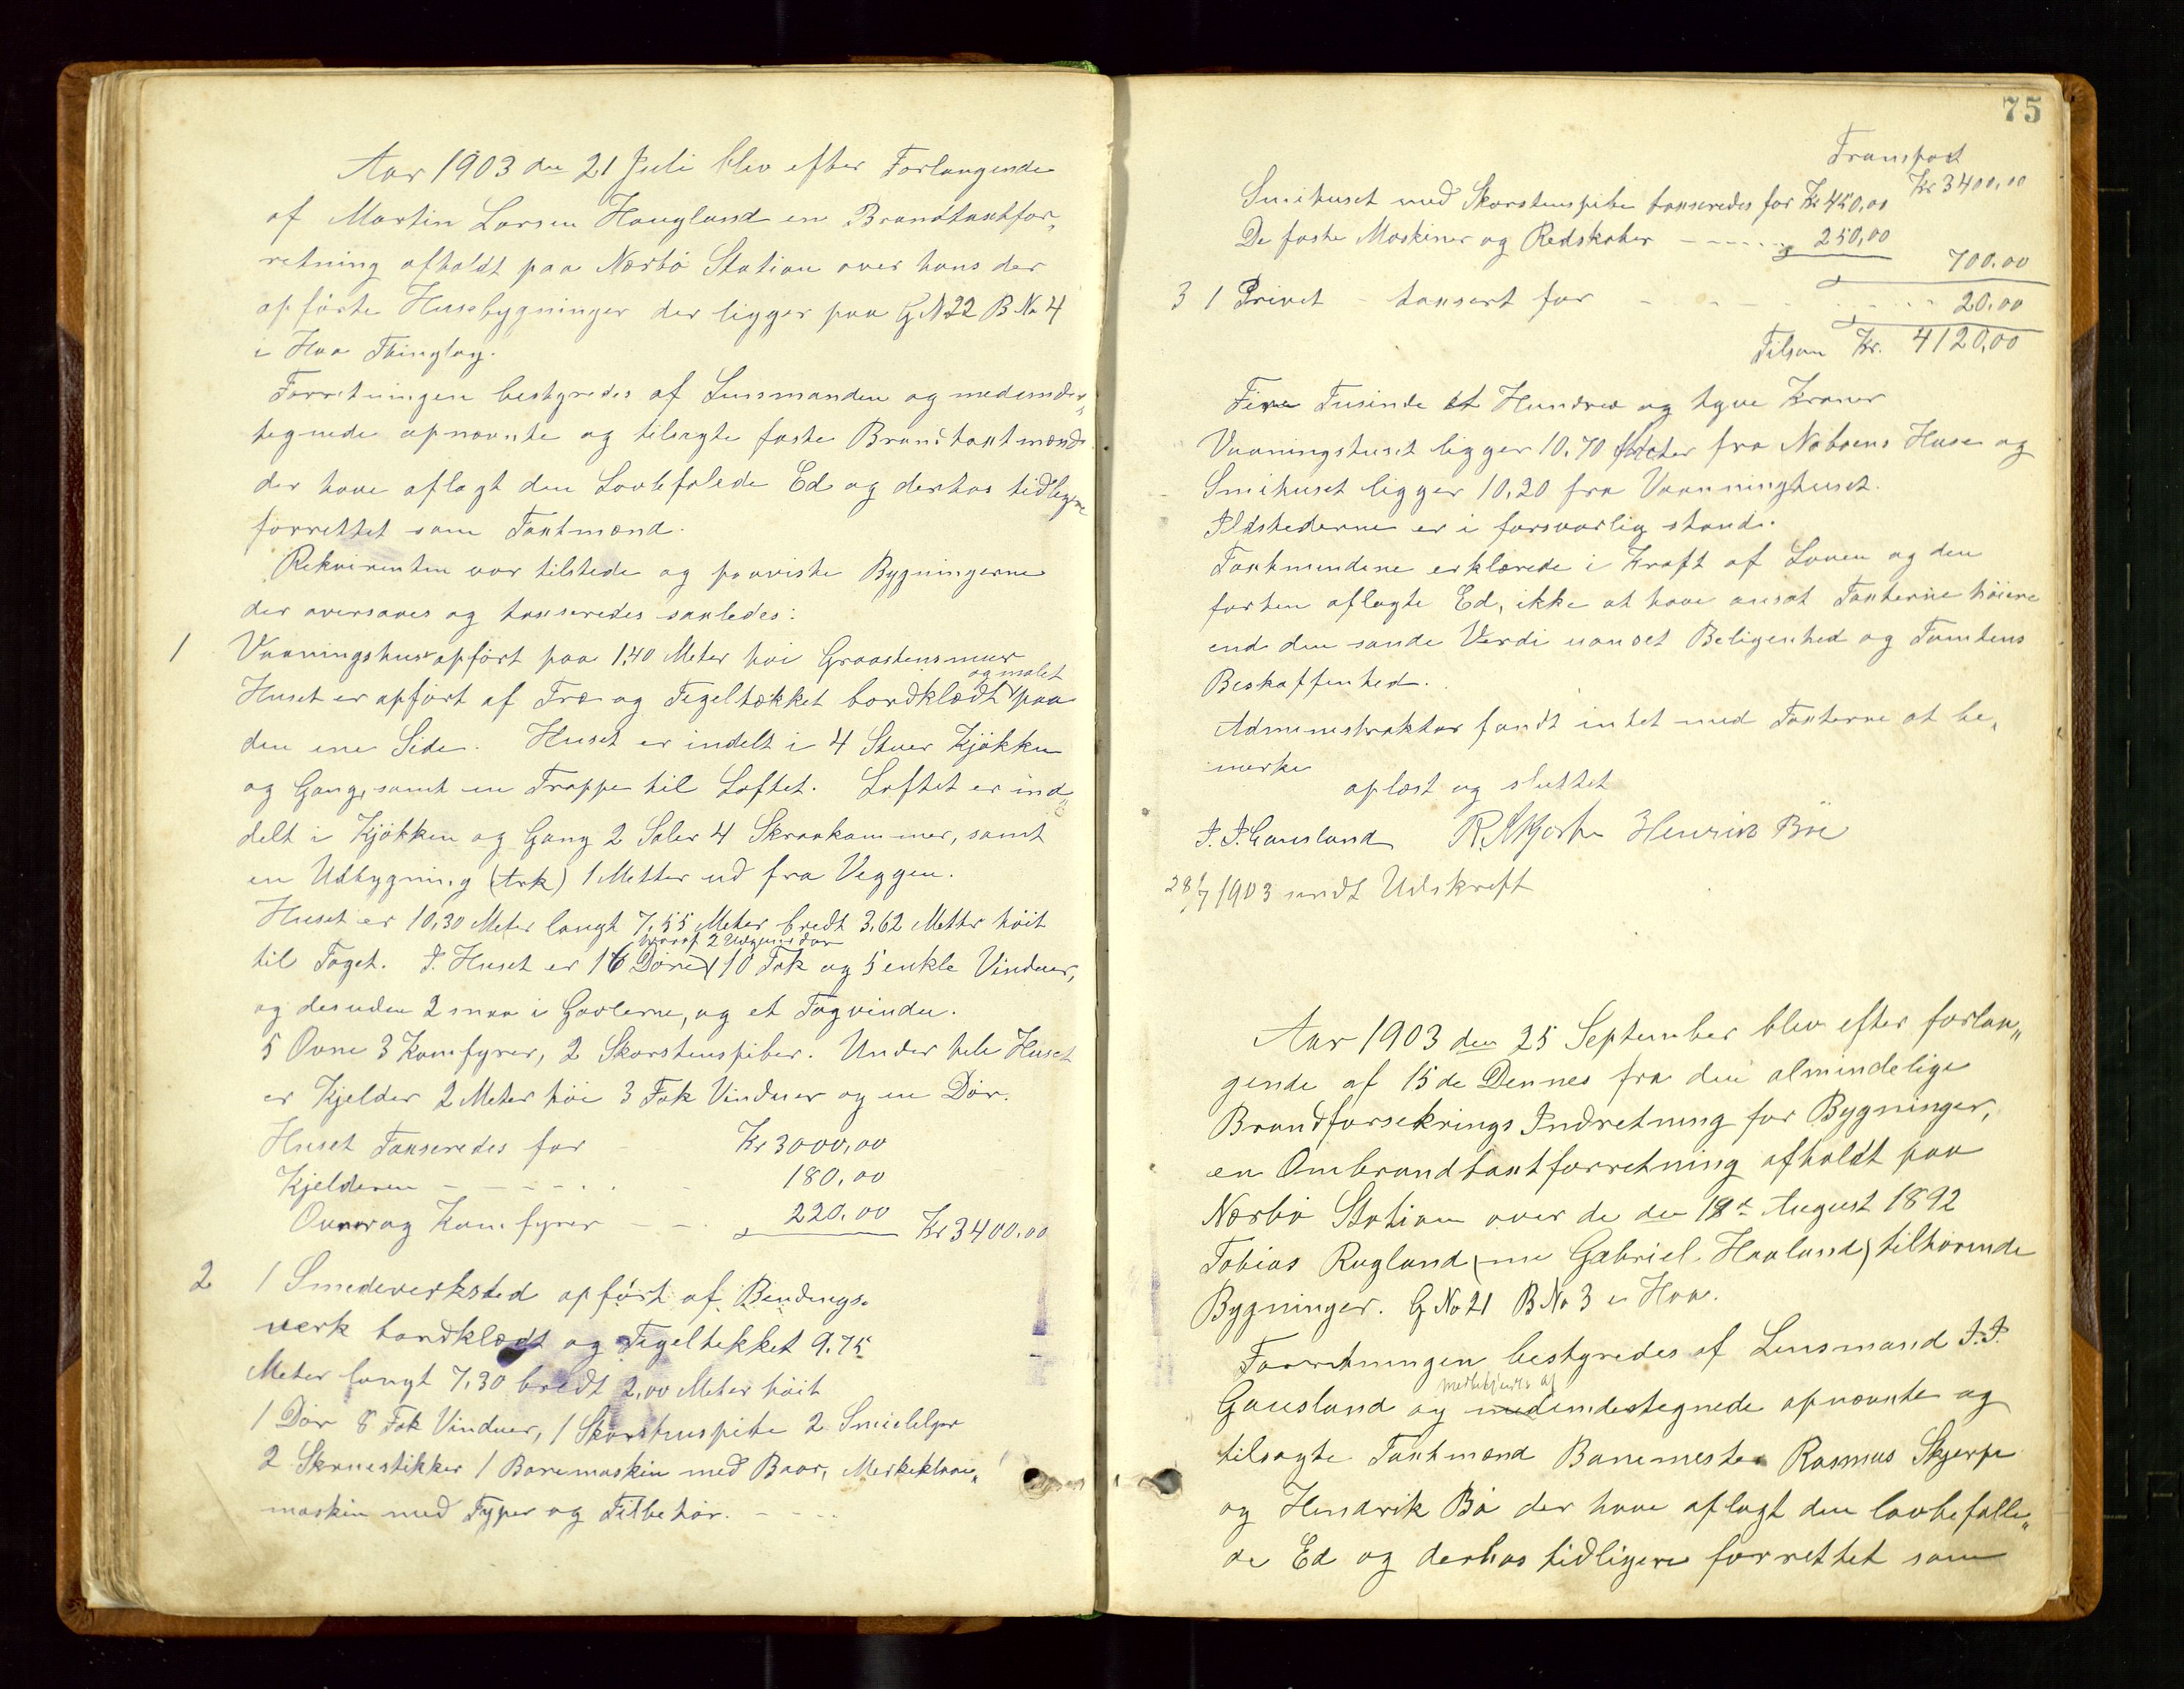 Aar 1903 den 21 Juli blev efter Forlangende
af Martin Larsen Haugland en Brandtaxtfor„
retning afholdt paa Nærbø Station over hans der
opførte Husebygninger der ligger paa G.N 22 B No 4
i Haa Thinglag.
Forretningen bestyredes af Lensmanden og medunder„
tegnede opnævnte og tilsagte faste Brandtaxtmænd
der have aflagt den Lovbefalede Ed og derhos tidligere
forrettet som Taxtmænd.
Rekvirenten var tilstede og paaviste Bygningerne
der oversaaes og taxseredes saaledes:
1 Vaaningshus opført paa 1,40 Meter høi Graastensmuur
og malet
Huset er opført af Træ og Tegeltækket bordklædt paa
den ene Side. Huset er indelt i 4 Stuer Kjøkken
og Gang, samt en Trappe til Loftet. Loftet er ind„
delt i Kjøkken og Gang 2 Saler 4 Skraakammer, samt
en Udbygning (Ark) 1 Metter ud fra Veggen.
Huset er 10,30 Meter langt 7,55 Meter bredt 3,62 Metter høit
hvoraf 2
til Taget. I Huset er 16 Døre 10 Fak og 5 enkle Vinduer,
og desuden 2 smaa i Gavlerne, og et Tagvindu.
5 Ovne 3 Komfyrer, 2 Skorstenspiber. Under hele Huset
er Kjelder 2 Meter høi 3 Fak Vinduer og en Dør.
Huset Taxseredes for - Kr 3000,00
Kjelderen - - - - - . . - 180,00
Ovner og Komfyrer - - . 220.00 Kr 3400.00
2 1 Smedeverksted opført af Bendings.
verk bordklædt og Tegeltekket 9.75
Meter langt 7,30 bredt 2,00 Meter høit
1 Dør 8 Fak Vinduer, 1 Skorstenspibe 2
2 Skruestikker 1 Boremaskin med Boor,
maskin med Typer og Tilbehør. - - - -
75
Transport
Kr 3400,00
Smihuset med Skorstenspibe taxseredes for Kr 450,00
De faste Maskiner og Redskaber - - - - - 250,00
700.00
3 1 Privet - taxsert for - - - - - - 20.00
Tilsam Kr. 4120,00
Fire Tusinde et Hundred og tyve Kroner
Vaaningshuset ligger 10,70 Meter fra Naboens Huse og
Smihuset ligger 10,20 fra Vaaninghuset.
Ildstederne er i forsvarlig stand.
Taxtmendene erklærede i Kraft af Loven og den
forhen aflagte Ed, ikke at have ansat Taxterne høiere
end den sande Verdi uanset Beligenhed og Tomtens
Beskaffenhed.
Administraktor fandt intet med Taxterne at be„
merke
oplæst og sluttet
I. I. Gausland R. Skjerpe Henrik Bøe
28/7 1903 sendt Udskrift
Aar 1903 den 25 September blev efter forlan„
gende af 15de Dennes fra den almindelige
Brandforsekrings Indretning for Bygninger,
en Ombrandtaxtforretning afholdt paa
Nærbø Station over de den 18de August 1892
Tobias Rugland (nu Gabriel Haaland) tilhørende
Bygninger. G No 21 B No 3 i Haa.
Forretningen bestyredes af Lensmand I. I.
Gausland og medundertegnede opnævnte og
tilsagte Taxtmænd Banemester Rasmus Skjerpe
og Hendrik Bø der have aflagt den lovbefalle„
de Ed og derhos tidligere forrettet som